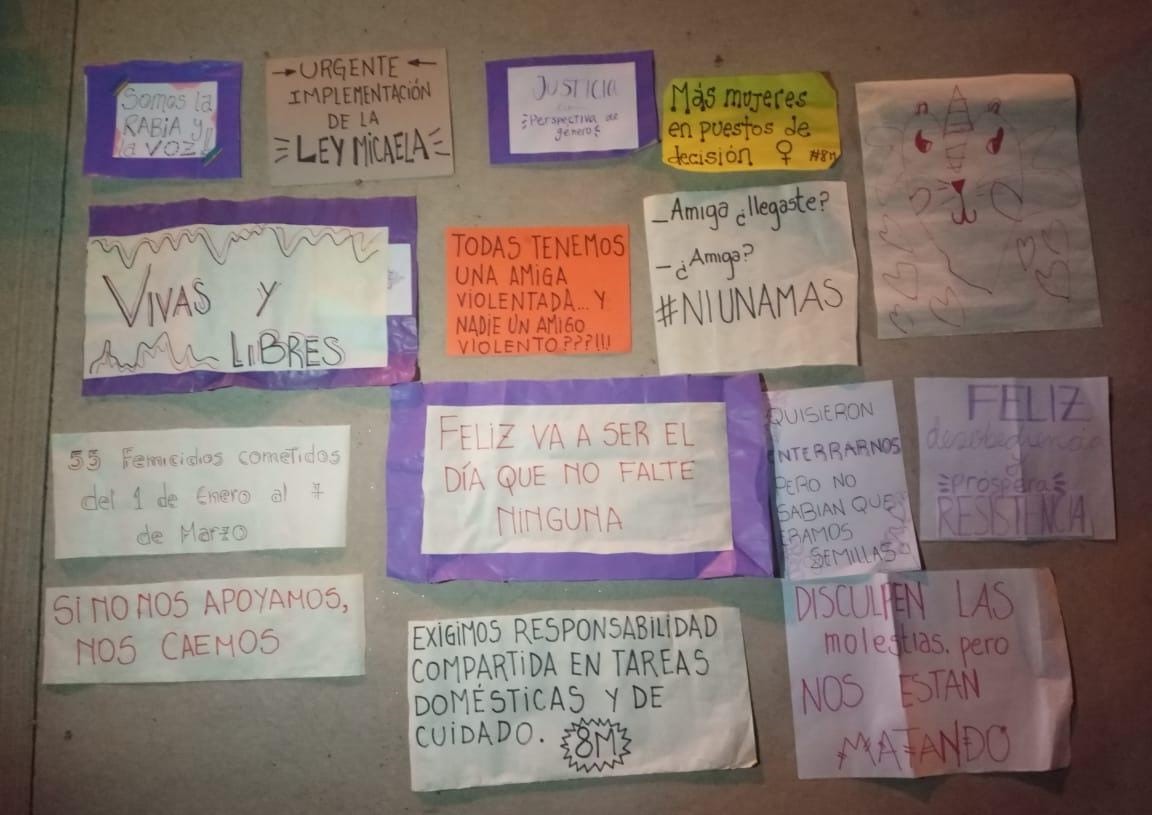 Somos la
RABIA y
la VOZ!!
→URGENTE←
IMPLEMENTACIÓN
DE LA
LEY MICAELA
JUSTICIA
con
Perspectiva de
género
Más mujeres
en puestos de
decisión ♀ #8M
_Amiga ¿llegaste?
_¿Amiga?
#NIUNAMAS
VIVAS Y
LIBRES
TODAS TENEMOS
UNA AMIGA
VIOLENTADA... Y
NADIE UN AMIGO
VIOLENTO???!!!
55 Femicidios cometidos
del 1 de Enero al 7
de Marzo
FELIZ VA A SER EL
DÍA QUE NO FALTE
NINGUNA
QUISIERON
ENTERRARNOS
PERO NO
SABIAN QUE
ERAMOS
SEMILLAS
FELIZ
desobediencia
y
prospera
RESISTENCIA
SI NO NOS APOYAMOS,
NOS CAEMOS
EXIGIMOS RESPONSABILIDAD
COMPARTIDA EN TAREAS
DOMÉSTICAS Y DE
CUIDADO. 8M
DISCULPEN LAS
molestias, pero
NOS ESTAN
MATANDO